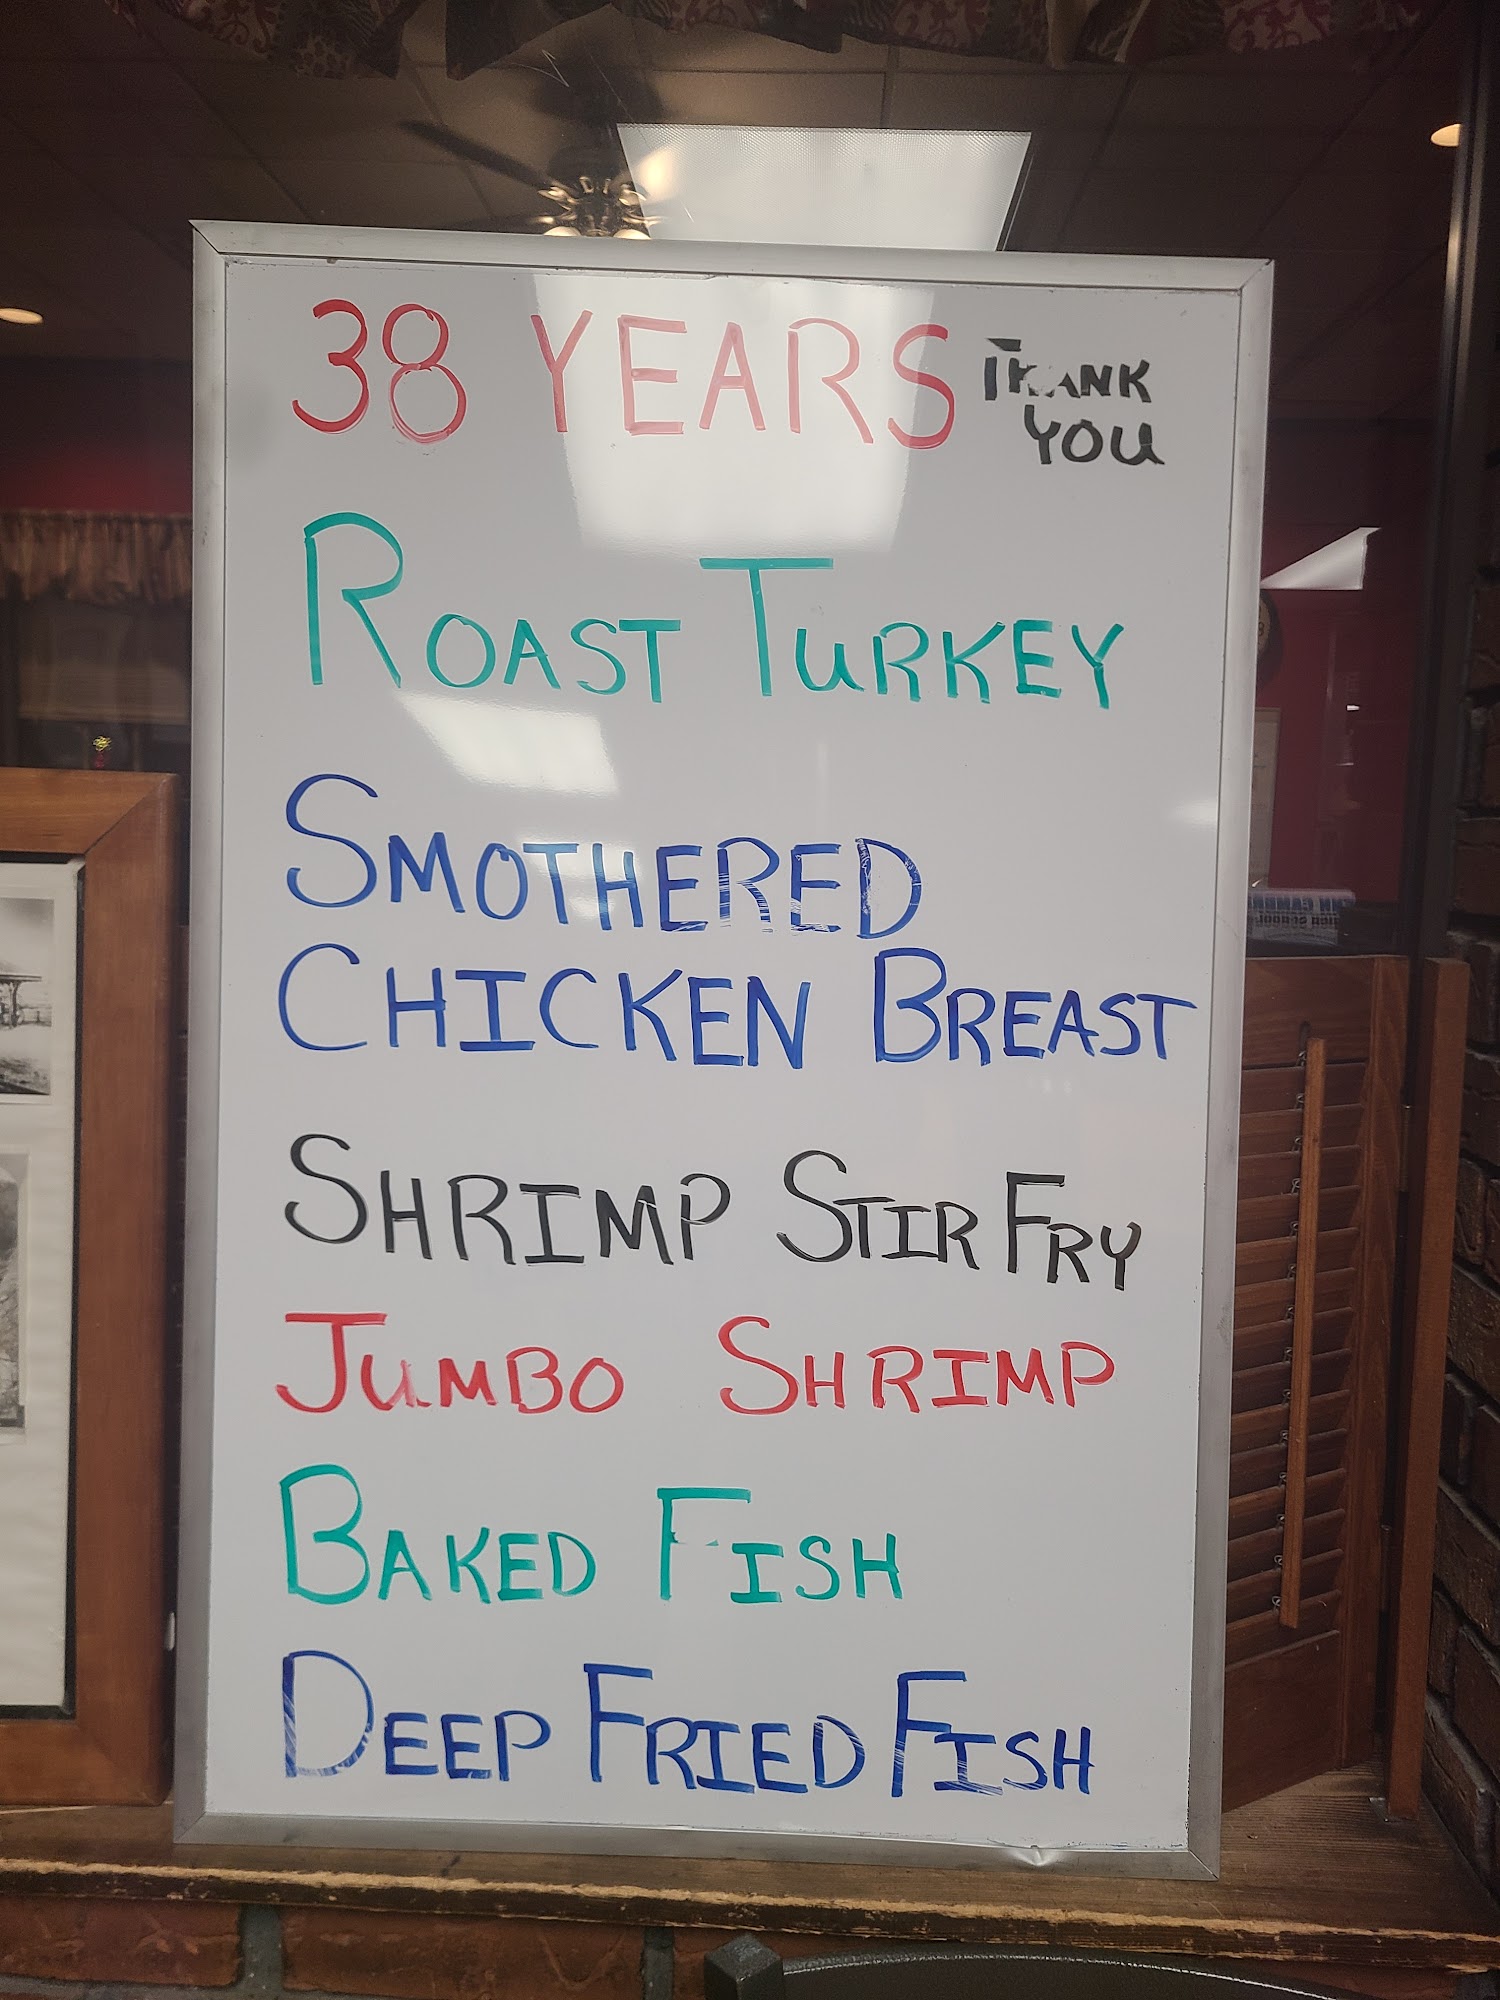 38 YEARS THANK YOU
ROAST TURKEY
SMOTHERED
CHICKEN BREAST
SHRIMP STIR FRY
JUMBO SHRIMP
BAKED FISH
DEEP FRIED FISH